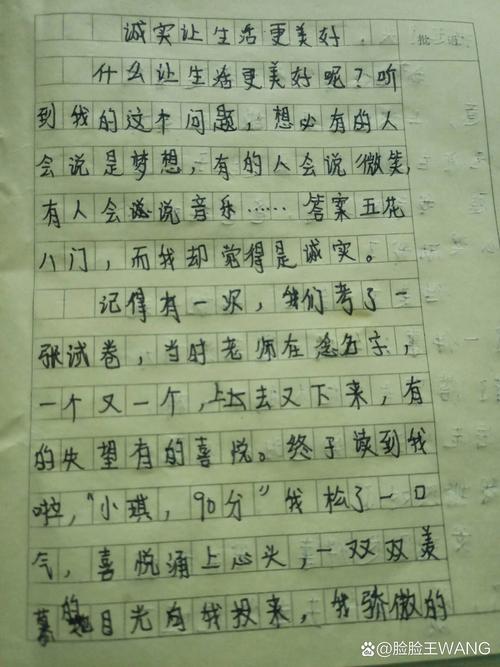 诚实让生活更美好
批语
什么让生活更美好呢？听
到我的这个问题，想必有的人
会说是梦想，有的人会说微笑，
有人会说音乐……答案五花
八门，而我却觉得是诚实。
记得有一次，我们考了一
张试卷，当时老师在念名字，
一个又一个，上去又下来，有
的失望有的喜悦。终于读到我
啦，“小琪，90分”我松了一口
气，喜悦涌上心头，一双双羡
慕的目光向我投来，我骄傲的
@脸脸王WANG